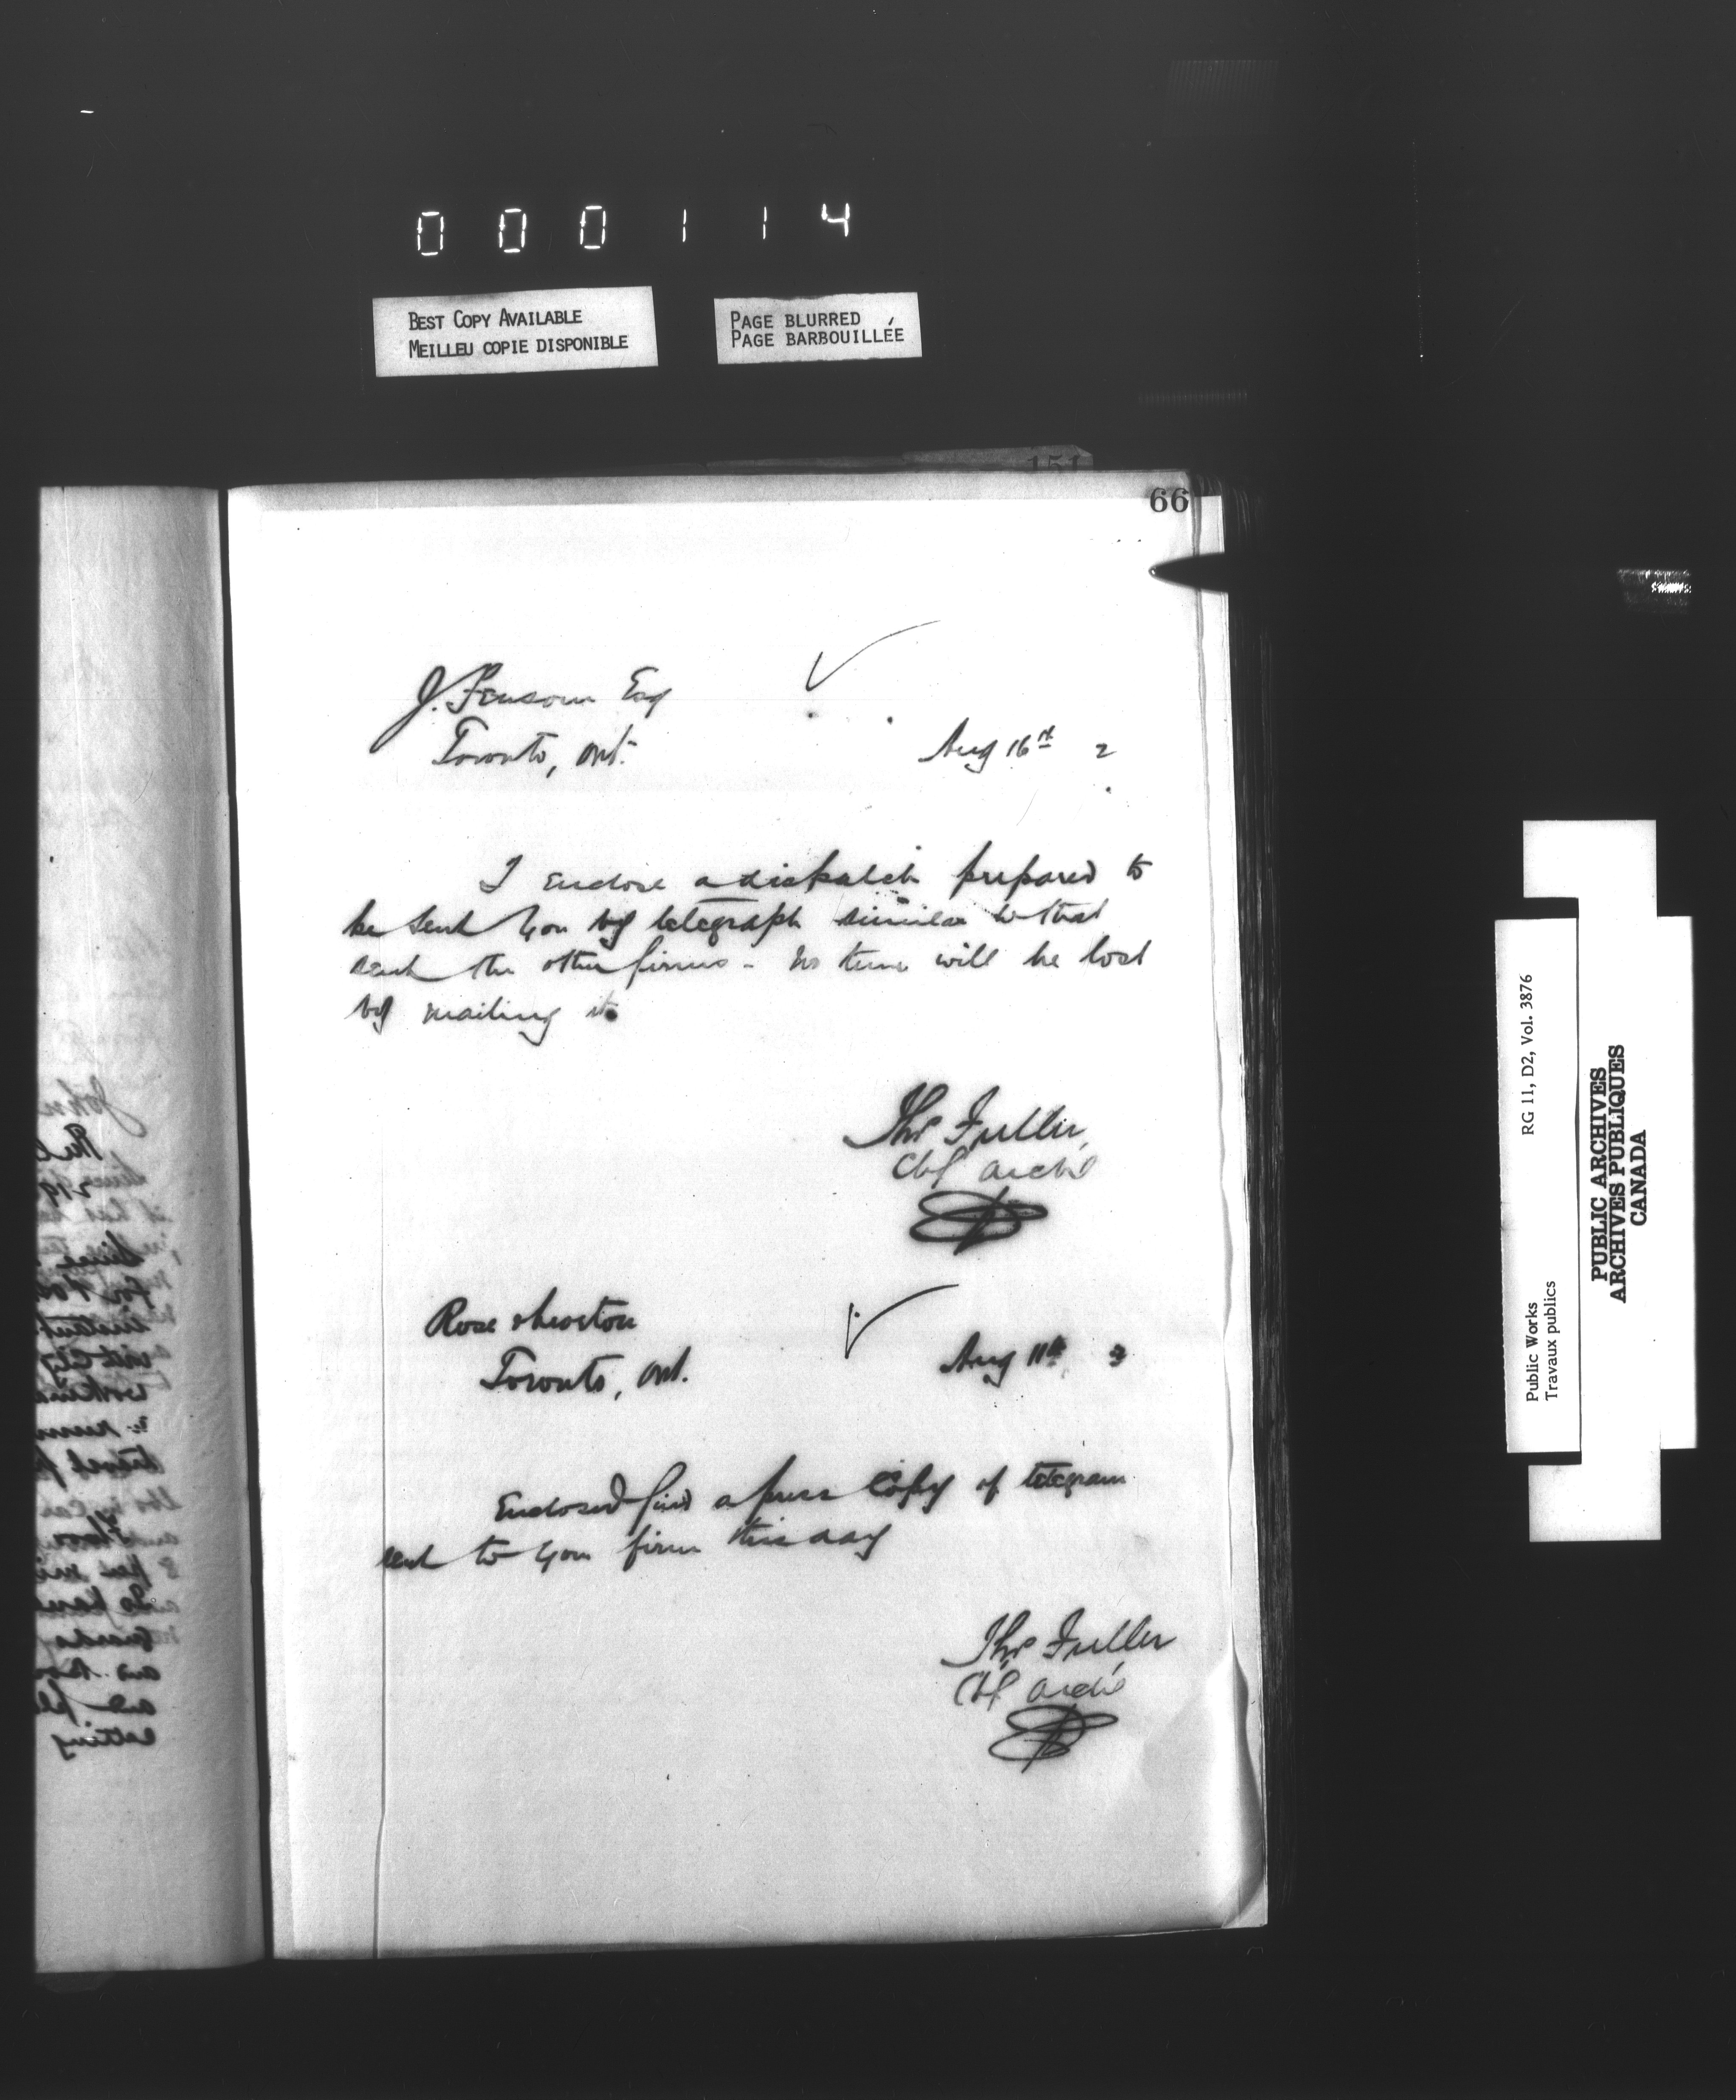 000114
BEST COPY AVAILABLE
MEILLEU COPIE DISPONIBLE
PAGE BLURRED
PAGE BARBOUILLÉE
151
66
J. Fensom Esq
Toronto, Ont.
Aug 16th 2
I enclose a dispatch prepared to
be sent you by telegraph similar to that
sent the other firms - no time will be lost
by mailing it.
Thos Fuller,
Chf Archt
Rose
Toronto, Ont.
Aug 11th 2
Enclosed find a press copy of telegram
sent to your firm this day
Thos Fuller
Chf Archt
RG 11, D2, Vol. 3876
Public Works
Travaux publics
PUBLIC ARCHIVES
ARCHIVES PUBLIQUES
CANADA